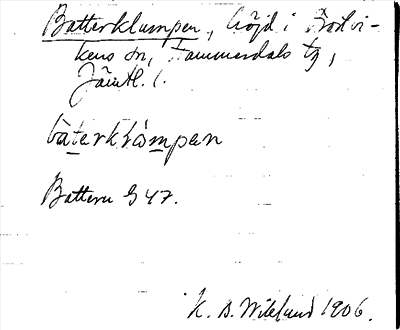 Batterklumpen, höjd i Bodvi-
kens sn, Hammerdals tg,
Jämtl. l.
bàterklòmpen
Battern G 47.
K. B. Wiklund 1906.